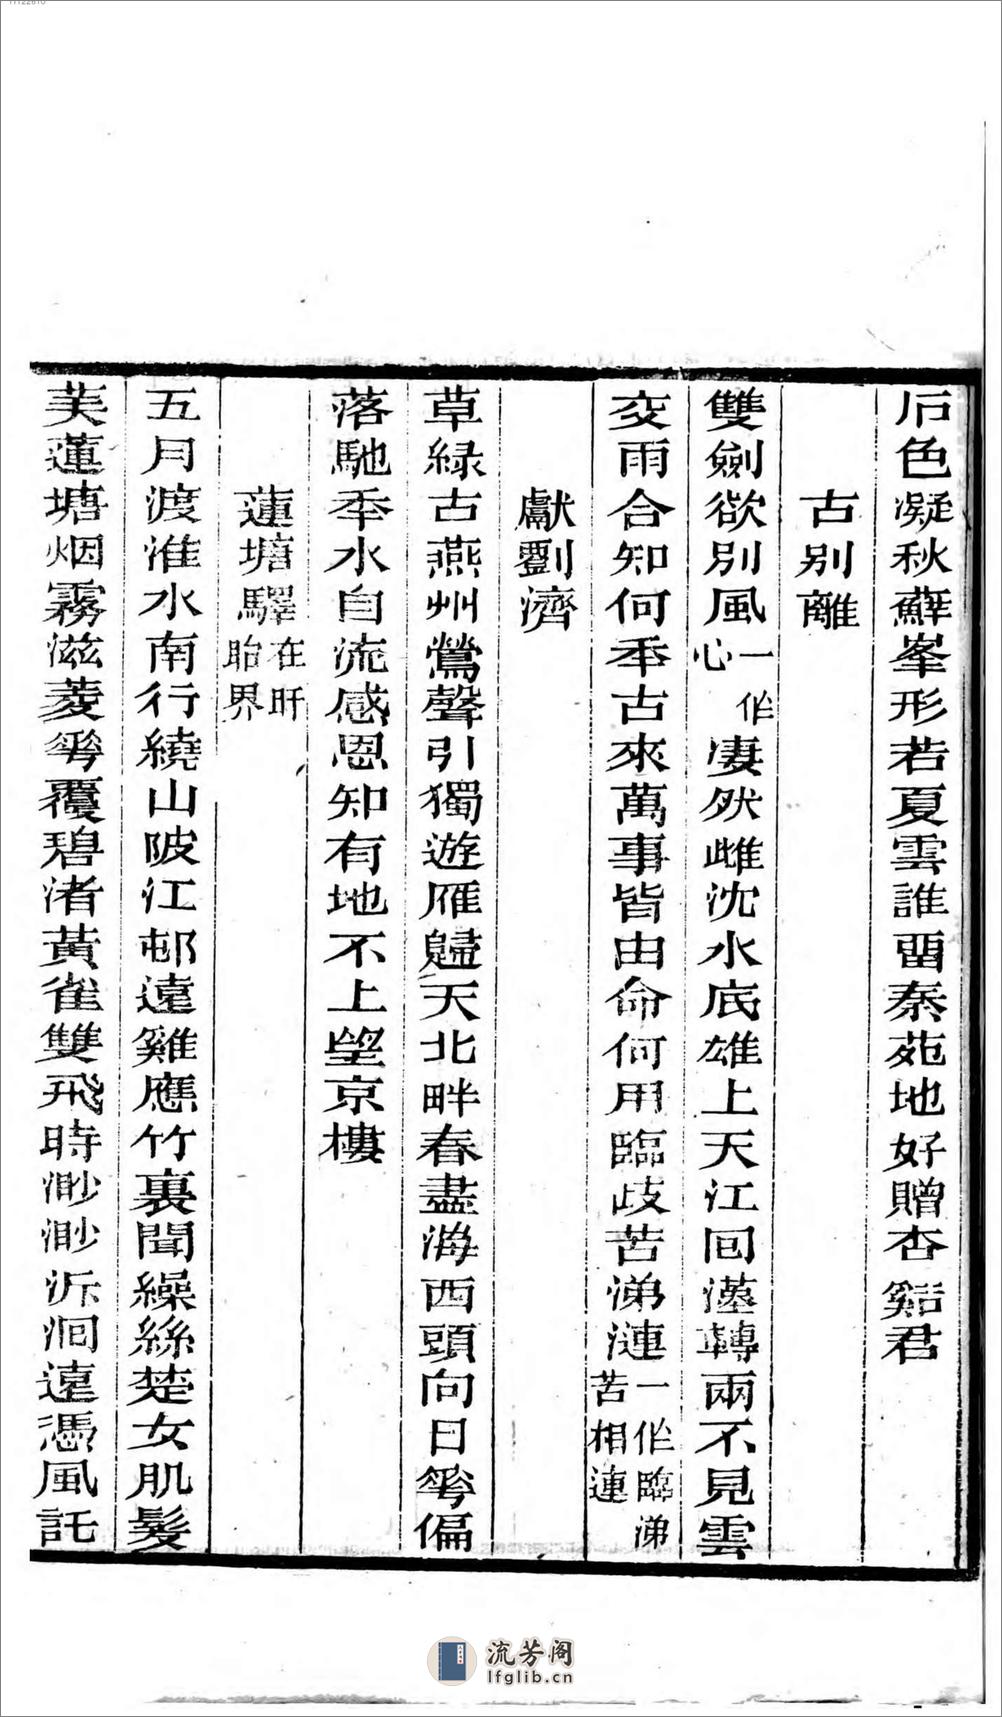 石色凝秋蘚峯形若夏雲誰畱秦苑地好贈杏谿君
古别離
雙劍欲别風一作心凄然雌沈水底雄上天江回漢轉兩不見雲
交雨合知何秊古來萬事皆由命何用臨歧苦涕漣一作臨涕苦相連
獻劉濟
草綠古燕州鶯聲引獨遊雁歸天北畔春盡海西頭向日蕐偏
落馳秊水自流感恩知有地不上望京樓
蓮塘驛在盱眙界
五月渡淮水南行繞山陂江邨遠雞應竹裏聞繰絲楚女肌髮
美蓮塘烟霧滋菱蕐覆碧渚黃雀雙飛時渺渺泝洄遠憑風託
流芳阁
lfglib.cn